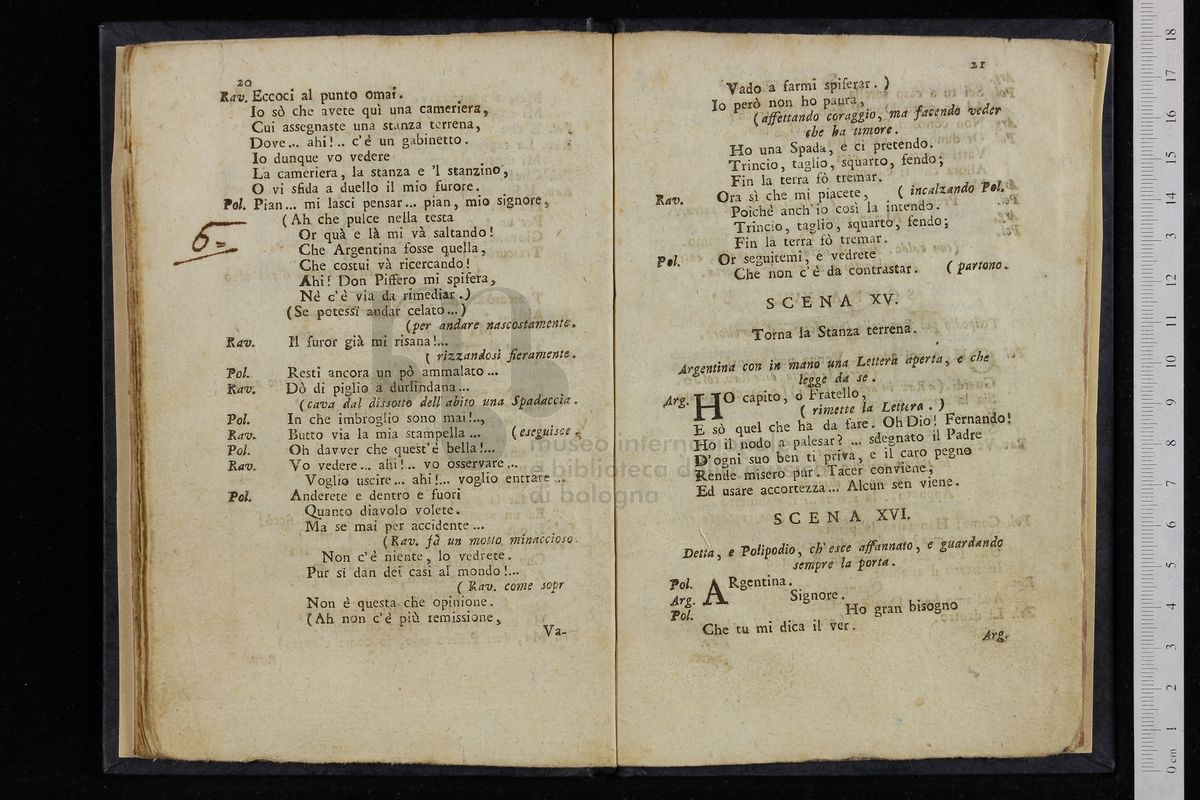 20
Rav. Eccoci al punto omai.
Io sò che avete quì una cameriera,
Cui assegnaste una stanza terrena,
Dove... ahi!.. c'è un gabinetto.
Io dunque vo vedere
La cameriera, la stanza e 'l stanzino,
O vi sfida a duello il mio furore.
Pol. Pian... mi lasci pensar... pian, mio signore,
(Ah che pulce nella testa
Or quà e là mi và saltando!
Che Argentina fosse quella,
Che costui và ricercando!
Ahi! Don Piffero mi spifera,
Nè c'è via da rimediar.)
(Se potessi andar celato...)
(per andare nascostamente.
Rav. Il furor già mi risana!...
( rizzandosi fieramente.
Pol. Resti ancora un pò ammalato...
Rav. Dò di piglio a durlindana...
(cava dal dissotto dell'abito una Spadaccia.
Pol. In che imbroglio sono mai!..,
Rav. Butto via la mia stampella... (eseguisce.
Pol. Oh davver che quest'è bella!...
Rav. Vo vedere... ahi!.. vo osservare...
Voglio uscire... ahi!... voglio entrare...
Pol. Anderete e dentro e fuori
Quanto diavolo volete.
Ma se mai per accidente...
(Rav. fà un motto minaccioso.
Non c'è niente, lo vedrete.
Pur si dan dei casi al mondo!...
( Rav. come sopr
Non è questa che opinione.
(Ah non c'è più remissione,
Va-
6=
21
Vado a farmi spiferar.)
Io però non ho paura,
(affettando coraggio, ma facendo veder
che ha timore.
Ho una Spada, e ci pretendo.
Trincio, taglio, squarto, fendo;
Fin la terra fò tremar.
Rav. Ora sì che mi piacete, ( incalzando Pol.
Poichè anch'io così la intendo.
Trincio, taglio, squarto, fendo;
Fin la terra fò tremar.
Pol. Or seguitemi, e vedrete
Che non c'è da contrastar. ( partono.
SCENA XV.
Torna la Stanza terrena.
Argentina con in mano una Lettera aperta, e che
legge da se.
Arg. HO capito, o Fratello,
( rimette la Lettera.)
E sò quel che ha da fare. Oh Dio! Fernando!
Ho il nodo a palesar?... sdegnato il Padre
D'ogni suo ben ti priva, e il caro pegno
Rende misero pur. Tacer conviene,
Ed usare accortezza... Alcun sen viene.
SCENA XVI.
Detta, e Polipodio, ch'esce affannato, e guardando
sempre la porta.
Pol. ARgentina.
Arg. Signore.
Pol. Ho gran bisogno
Che tu mi dica il ver.
Arg.
museo internazionale
e biblioteca della musica
di bologna
0 cm 1 2 3 4 5 6 7 8 9 10 11 12 13 14 15 16 17 18